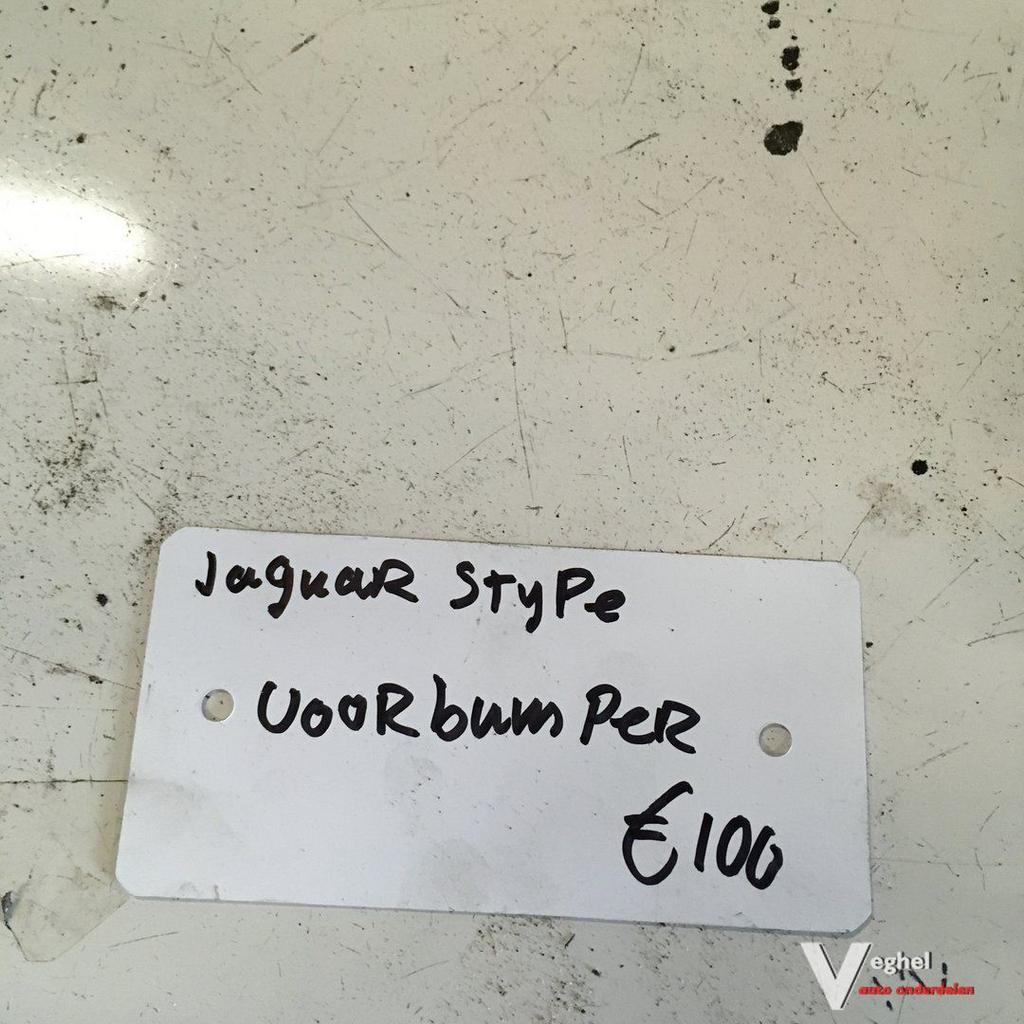 Jaguar Stype
voorbumper
€100
Veghel
auto onderdelen